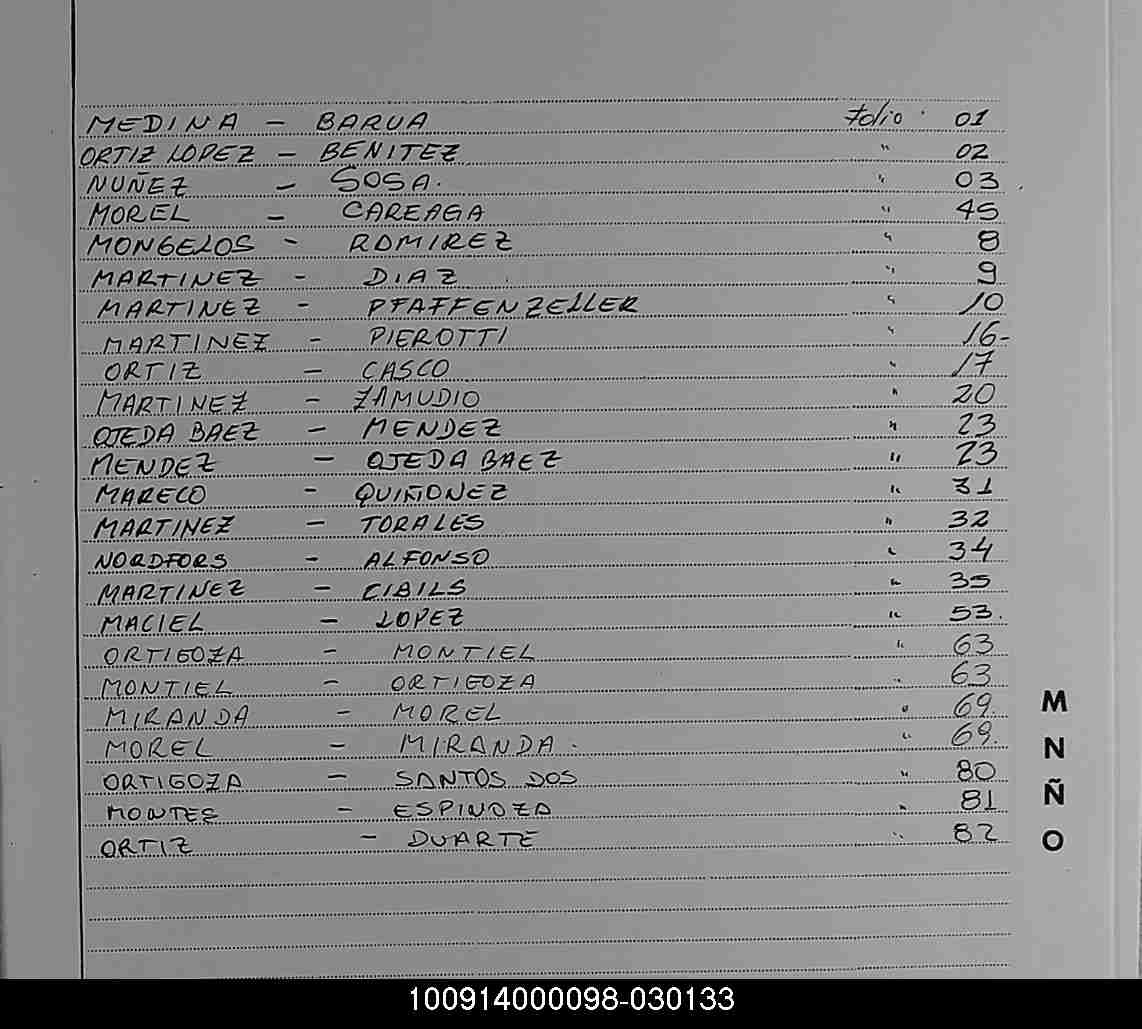 MEDINA - BARUA Folio 01
ORTIZ LOPEZ - BENITEZ " 02
NUÑEZ - SOSA. " 03
MOREL - CAREAGA " 45
MONGELOS - ROMIREZ " 8
MARTINEZ - DIAZ " 9
MARTINEZ - PFAFFENZELLER " 10
MARTINEZ - PIEROTTI " 16-
ORTIZ - CASCO " 17
MARTINEZ - ZAMUDIO " 20
OJEDA BAEZ - MENDEZ " 23
MENDEZ - OJEDA BAEZ " 23
MARECO - QUIÑONEZ " 31
MARTINEZ - TORALES " 32
NORDFORS - ALFONSO " 34
MARTINEZ - CIBILS " 35
MACIEL - LOPEZ " 53.
ORTIGOZA - MONTIEL " 63
MONTIEL - ORTIGOZA " 63
MIRANDA - MOREL " 69.
MOREL - MIRANDA. " 69.
ORTIGOZA - SANTOS DOS " 80
MONTES - ESPINOZA " 81
ORTIZ - DUARTE " 82
M
N
Ñ
O
100914000098-030133